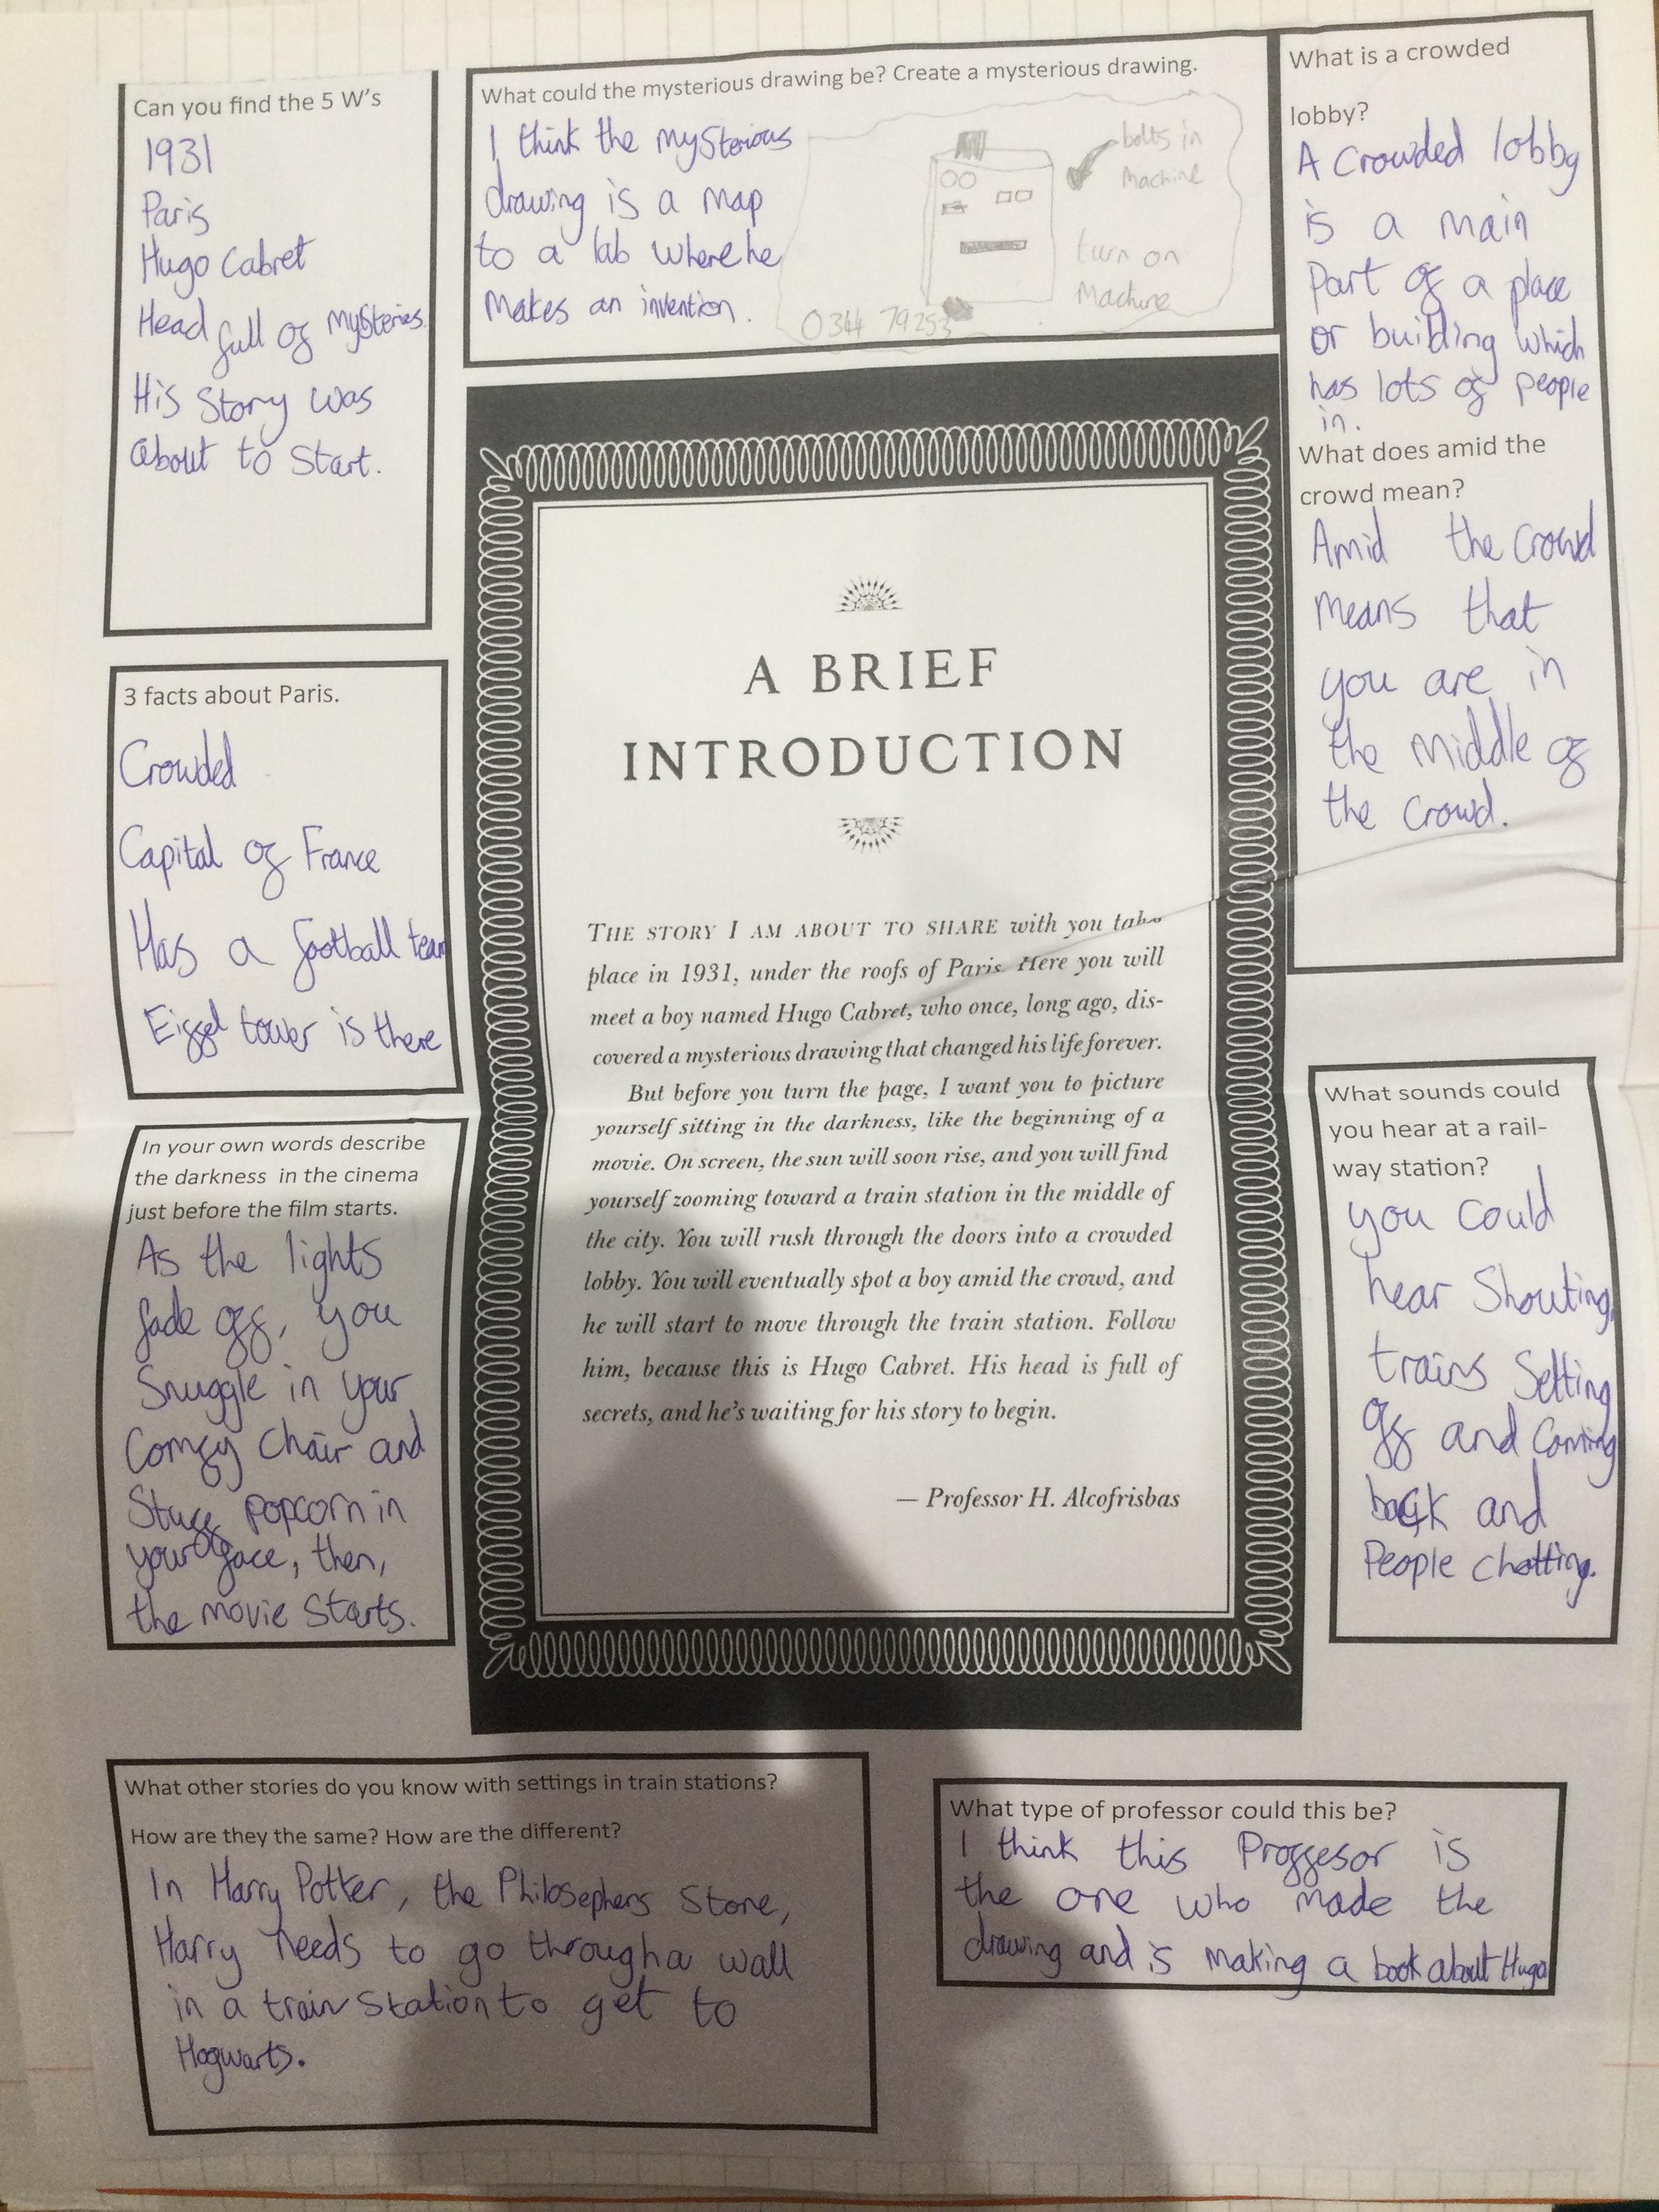 Can you find the 5 W's
1931
Paris
Hugo Cabret
Head full of mysteries.
His Story was
about to Start.
What could the mysterious drawing be? Create a mysterious drawing.
I think the mysterious
drawing is a map
to a lab where he
makes an invention.
bolts in
machine
turn on
Machine
0344 79253
What is a crowded
lobby?
A crowded lobby
is a main
Part of a place
or building which
has lots of people
in.
What does amid the
crowd mean?
Amid the crowd
means that
you are in
the middle of
the crowd.
3 facts about Paris.
Crowded
Capital of France
Has a football team
Eiffel tower is there
A BRIEF
INTRODUCTION
THE STORY I AM ABOUT TO SHARE with you take
place in 1931, under the roofs of Paris. Here you will
meet a boy named Hugo Cabret, who once, long ago, dis-
covered a mysterious drawing that changed his life forever.
But before you turn the page, I want you to picture
yourself sitting in the darkness, like the beginning of a
movie. On screen, the sun will soon rise, and you will find
yourself zooming toward a train station in the middle of
the city. You will rush through the doors into a crowded
lobby. You will eventually spot a boy amid the crowd, and
he will start to move through the train station. Follow
him, because this is Hugo Cabret. His head is full of
secrets, and he's waiting for his story to begin.
— Professor H. Alcofrisbas
In your own words describe
the darkness in the cinema
just before the film starts.
As the lights
fade off, you
Snuggle in your
Comfy chair and
Stuff popcorn in
your face, then,
the movie starts.
What sounds could
you hear at a rail-
way station?
you could
hear Shouting,
trains Setting
off and Coming
back and
People chatting.
What other stories do you know with settings in train stations?
How are they the same? How are the different?
In Harry Potter, the Philosephers Stone,
Harry needs to go through a wall
in a train station to get to
Hogwarts.
What type of professor could this be?
I think this Proffesor is
the one who made the
drawing and is making a book about Hugo